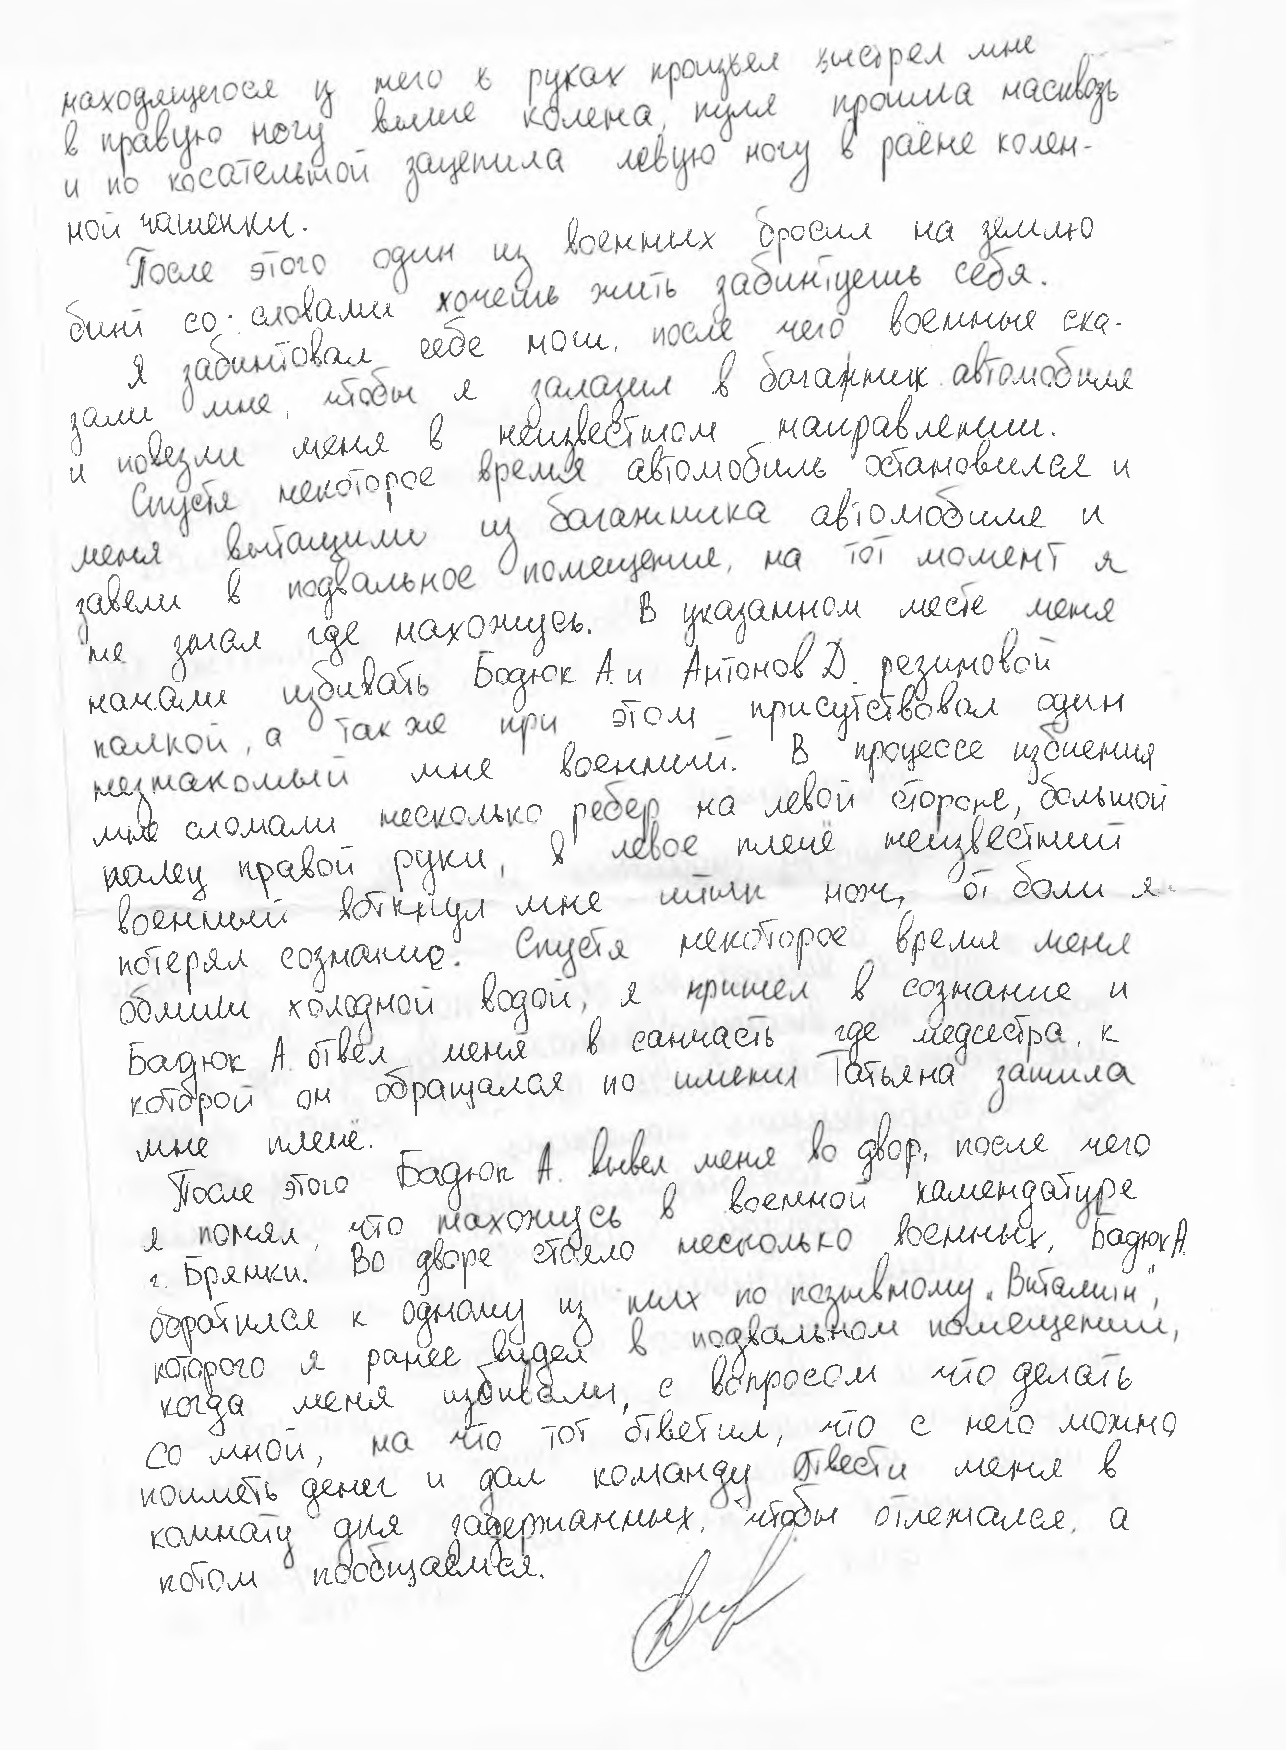 находящегося у него в руках произвел выстрел мне
в правую ногу выше колена, пуля прошла насквозь
и по косательной зацепила левую ногу в раёне колен-
ной чашечки.
После этого один из военных бросил на землю
бинт со словами хочешь жить забинтуешь себя.
Я забинтовал себе ноги, после чего военные ска-
зали мне, чтобы я залазил в багажник автомобиля
и повезли меня в неизвестном направлении.
Спустя некоторое время автомобиль остановился и
меня вытащили из багажника автомобиля и
завели в подвальное помещение, на тот момент я
не знал где нахожусь. В указанном месте меня
начали избивать Бадюк А. и Антонов Д. резиновой
палкой, а так же при этом присутствовал один
незнакомый мне военный. В процессе избиения
мне сломали несколько ребер на левой стороне, большой
палец правой руки, в левое плечё неизвестний
военный воткнул мне штык нож, от боли я
потерял сознание. Спустя некоторое время меня
облили холодной водой, я пришел в сознание и
Бадюк А. отвел меня в санчасть где медсестра, к
которой он обращался по имени Татьяна зашила
мне плечё.
После этого Бадюк А. вывел меня во двор, после чего
я понял, что нахожусь в военной камендатуре
г. Брянки. Во дворе стояло несколько военных, Бадюк А.
обратился к одному из них по позывному „Виталич",
которого я ранее видел в подвальном помещении,
когда меня избивали, с вопросом что делать
со мной, на что тот ответил, что с него можно
поиметь денег и дал команду отвести меня в
комнату для задержанных, чтобы отлежался, а
потом пообщаемся.